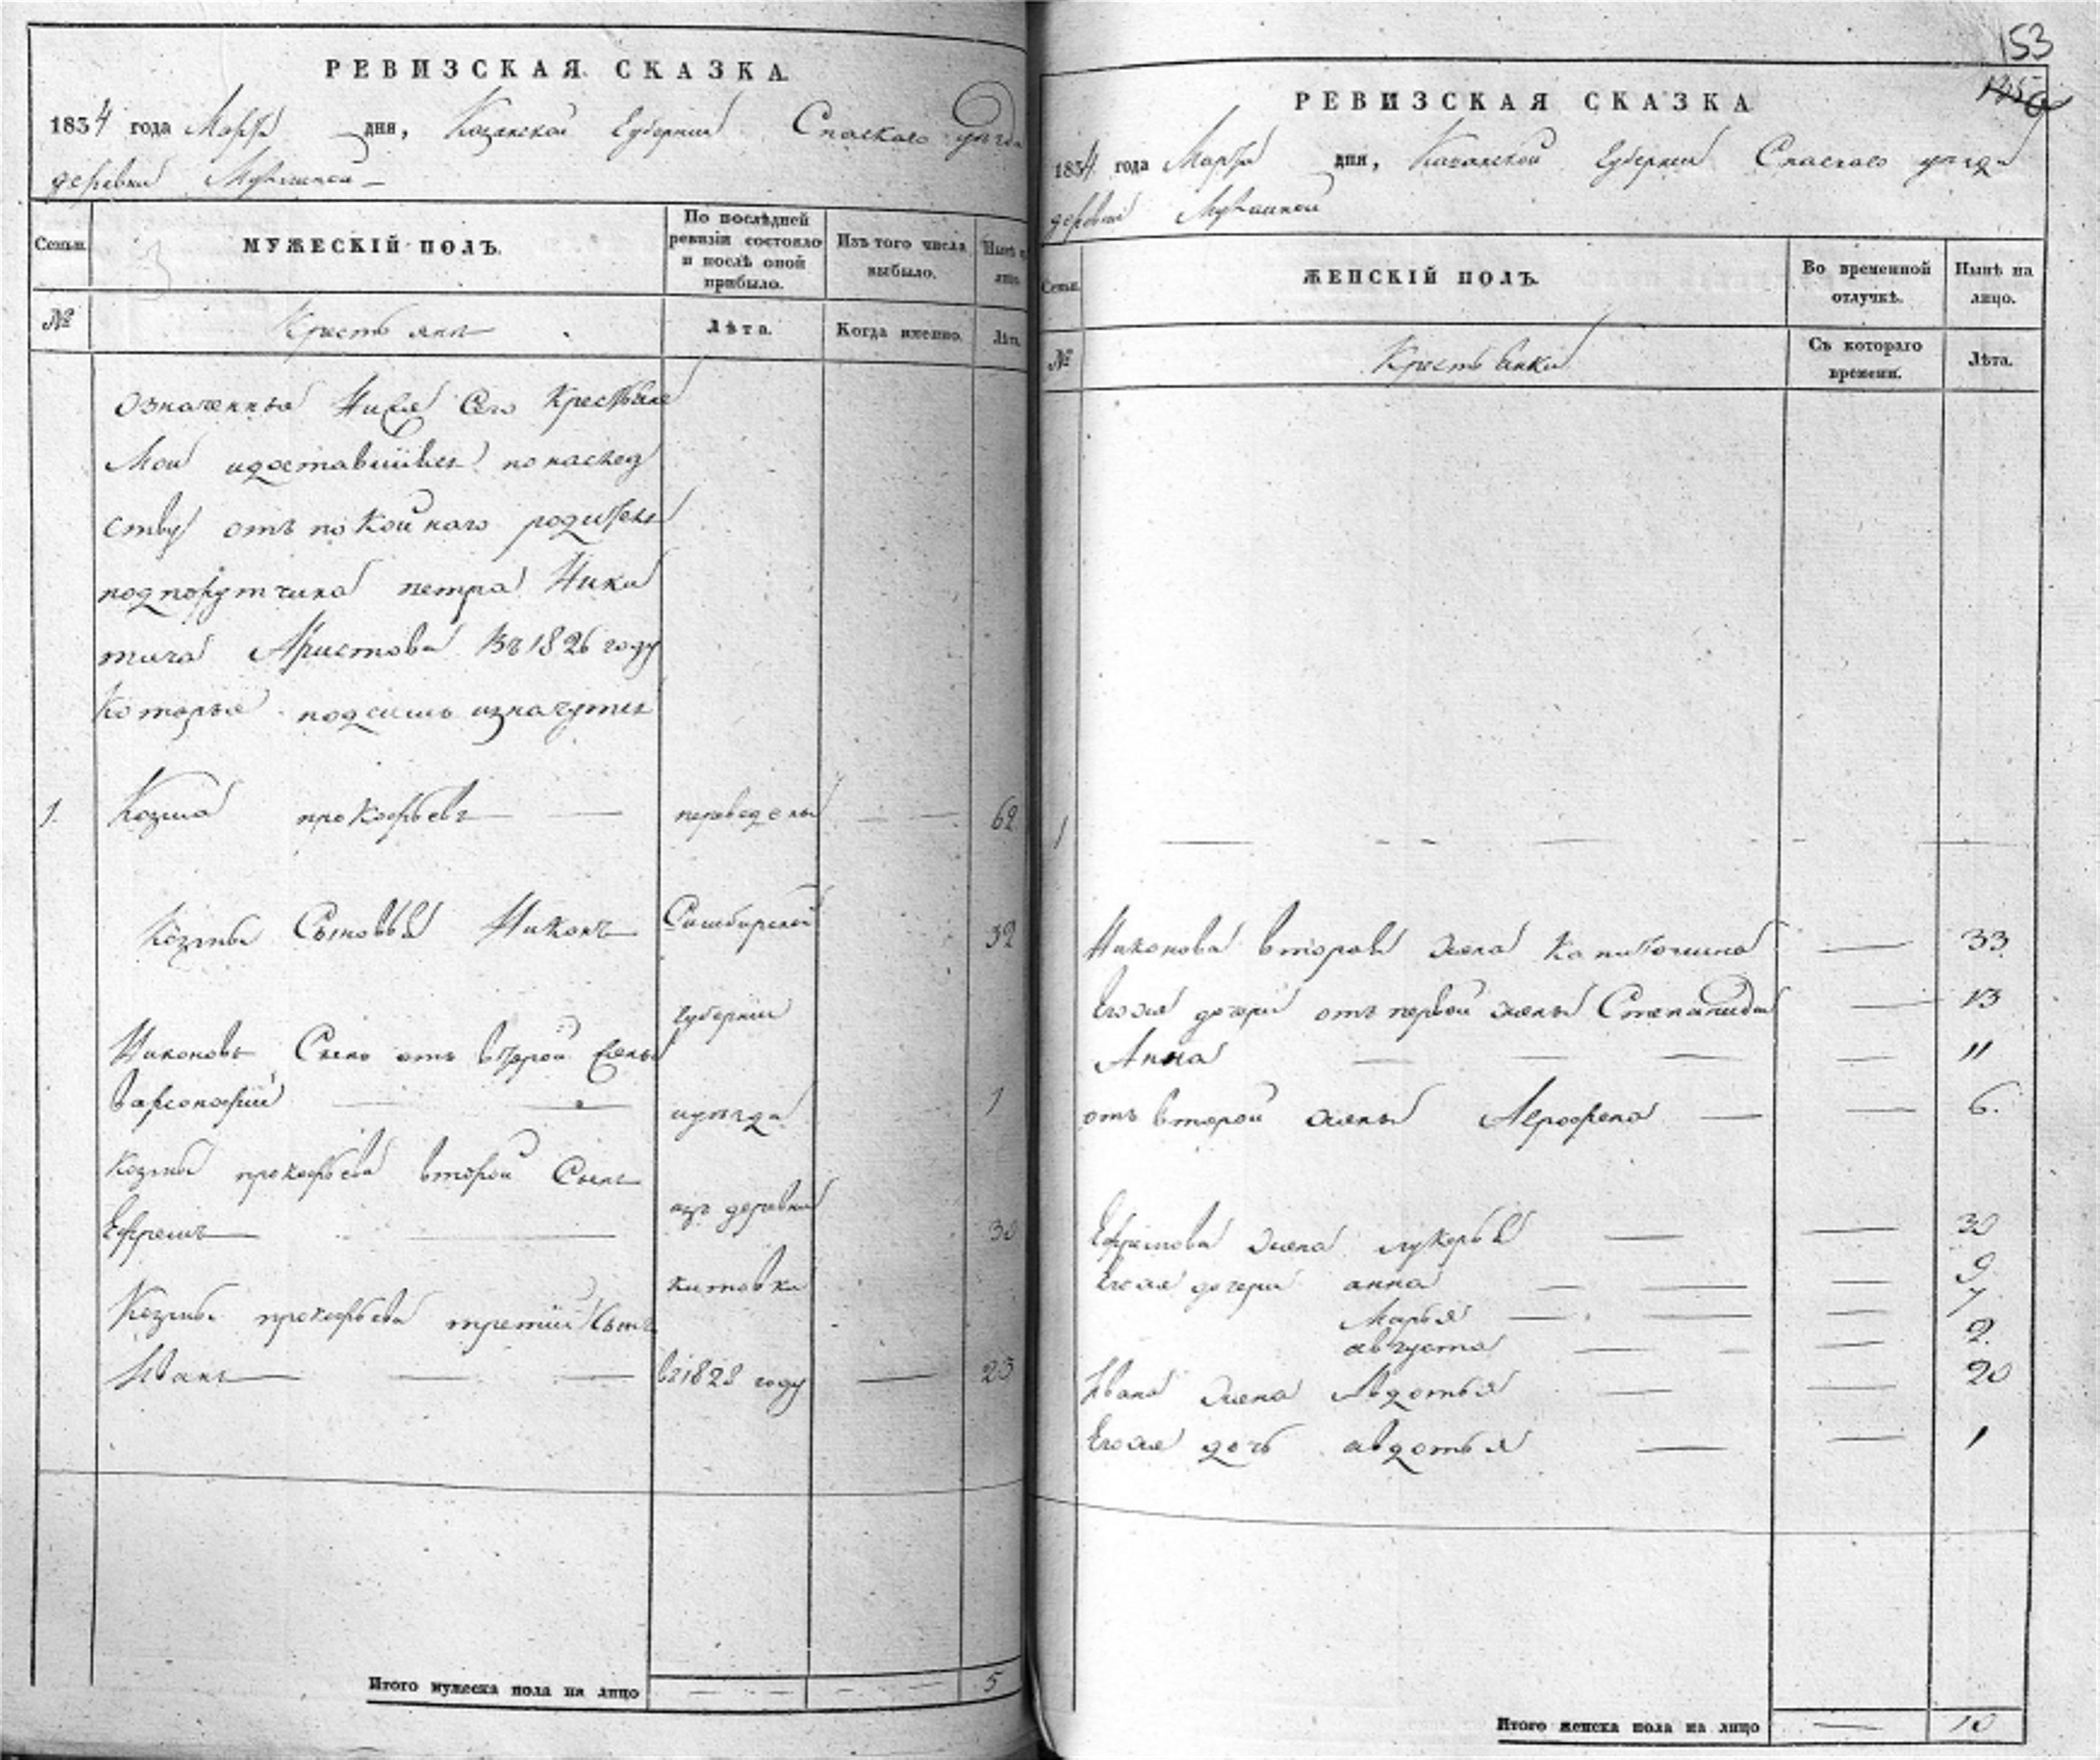 РЕВИЗСКАЯ СКАЗКА
1834 года Марта дня, Казанской Губернии Спаского уезда
деревни
Семьи.
МУЖЕСКІЙ ПОЛЪ.
По послѣдней ревизіи состояло и послѣ оной прибыло.
Изъ того числа выбыло.
Нынѣ
лицо.
№
Крестьяне
Лѣта.
Когда именно.
Лѣта.
означенныя Ниже Сего Крестьяне
Мои идоставшіися понаслед
ству отъ покойнаго родителя
подпорутчика петра Ники
тича Аристова въ 1826 году
Которые подсимъ изначутся
1. Козма прокофьевъ — — переведены — — 62
Козмы Сыновья Никонъ Симбирской 32
Губерніи
Никоновъ Сынъ отъ второй жены
Варсонофий — — иуезда 1
Козмы прокофьева второй Сынъ
Ефремъ — — изъ деревни 30
китовки
Козмы прокофьева третий Сынъ
Иванъ — — — въ 1828 году — 23
Итого мужеска пола на лицо — — — — 5
153
РЕВИЗСКАЯ СКАЗКА
1834 года Марта дня, Казанской Губернии Спаского уезда
деревни
Семьи.
ЖЕНСКІЙ ПОЛЪ.
Во временной отлучкѣ.
Нынѣ на лицо.
№
Крестьянки
Съ котораго времени.
Лѣта.
1 — — — — — —
Никонова вторая жена Капитолина — 33
Егожа дочери отъ первой жены Степанида — 13
Анна — — — — 11
отъ второй жены Агрофена — — 6.
Ефремова жена лукерья — — 30
Егожа дочери анна — — — 9
Марья — — — 7
августа — — — 2.
Ивана жена Авдотья — — 20
Егожа дочь авдотья — — 1
Итого женска пола на лицо — 10